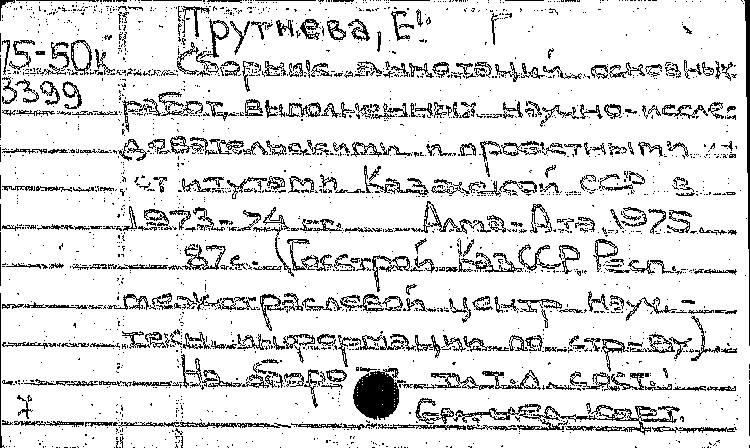 Трутнева, Е.
75-50к Сборник аннотаций основных
3399 работ, выполненных научно-иссле-
довательскими и проектными ин-
ститутами Казахской ССР в
1973-74 гг. Алма-Ата, 1975
87с. (Госстрой КазССР. Респ.
межотраслевой центр науч.-
техн. информации по стр-ву).
На обороте тит.л. сост.: